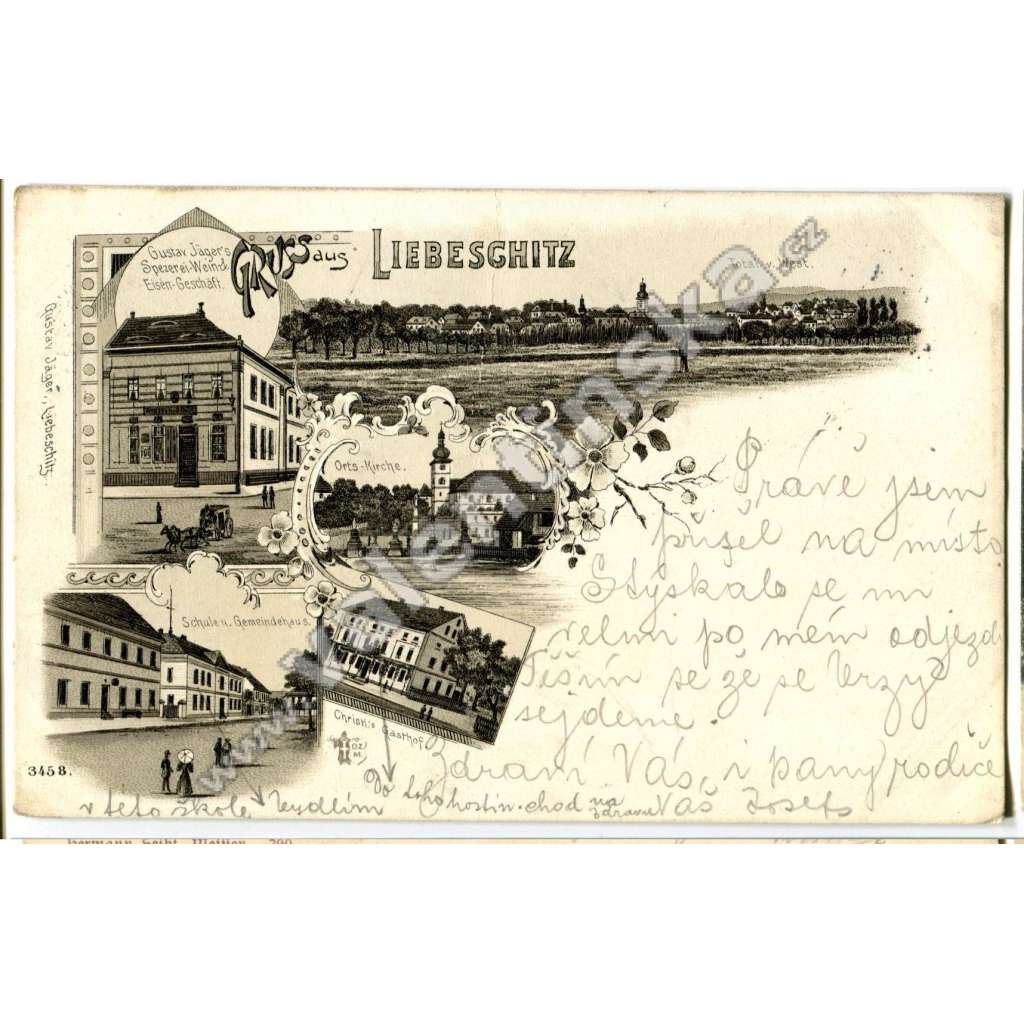 Gustav Jäger's
Spezerei-Wein&
Eisen-Geschäft.
GRUSS aus LIEBESCHITZ
Total v. West.
Gustav Jäger, Liebeschitz.
Orts-Kirche.
Schule u. Gemeindehaus.
Christl's Gasthof.
3458.
Právě jsem
přišel na místo
Stýskalo se mi
velmi po mém odjezdu
Těším se že se brzy
sejdeme.
Zdraví Vás i pány rodiče
Váš Josef
v této škole bydlím
Do toho hostin. chod na
www.valentinska.cz
Hermann Seibt, Meißen